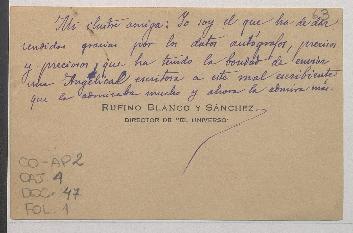 63
Mi ilustre amiga: Yo soy el que ha de dar
rendidas gracias por los datos autógrafos, precisos
y preciosos, que ha tenido la bondad de enviar
una Angelical escritora a este mal escribiente
que la admiraba mucho y ahora la admira más.
RUFINO BLANCO Y SÁNCHEZ
DIRECTOR DE "EL UNIVERSO"
CO-AP2
CAJ. 4
DOC. 47
FOL. 1